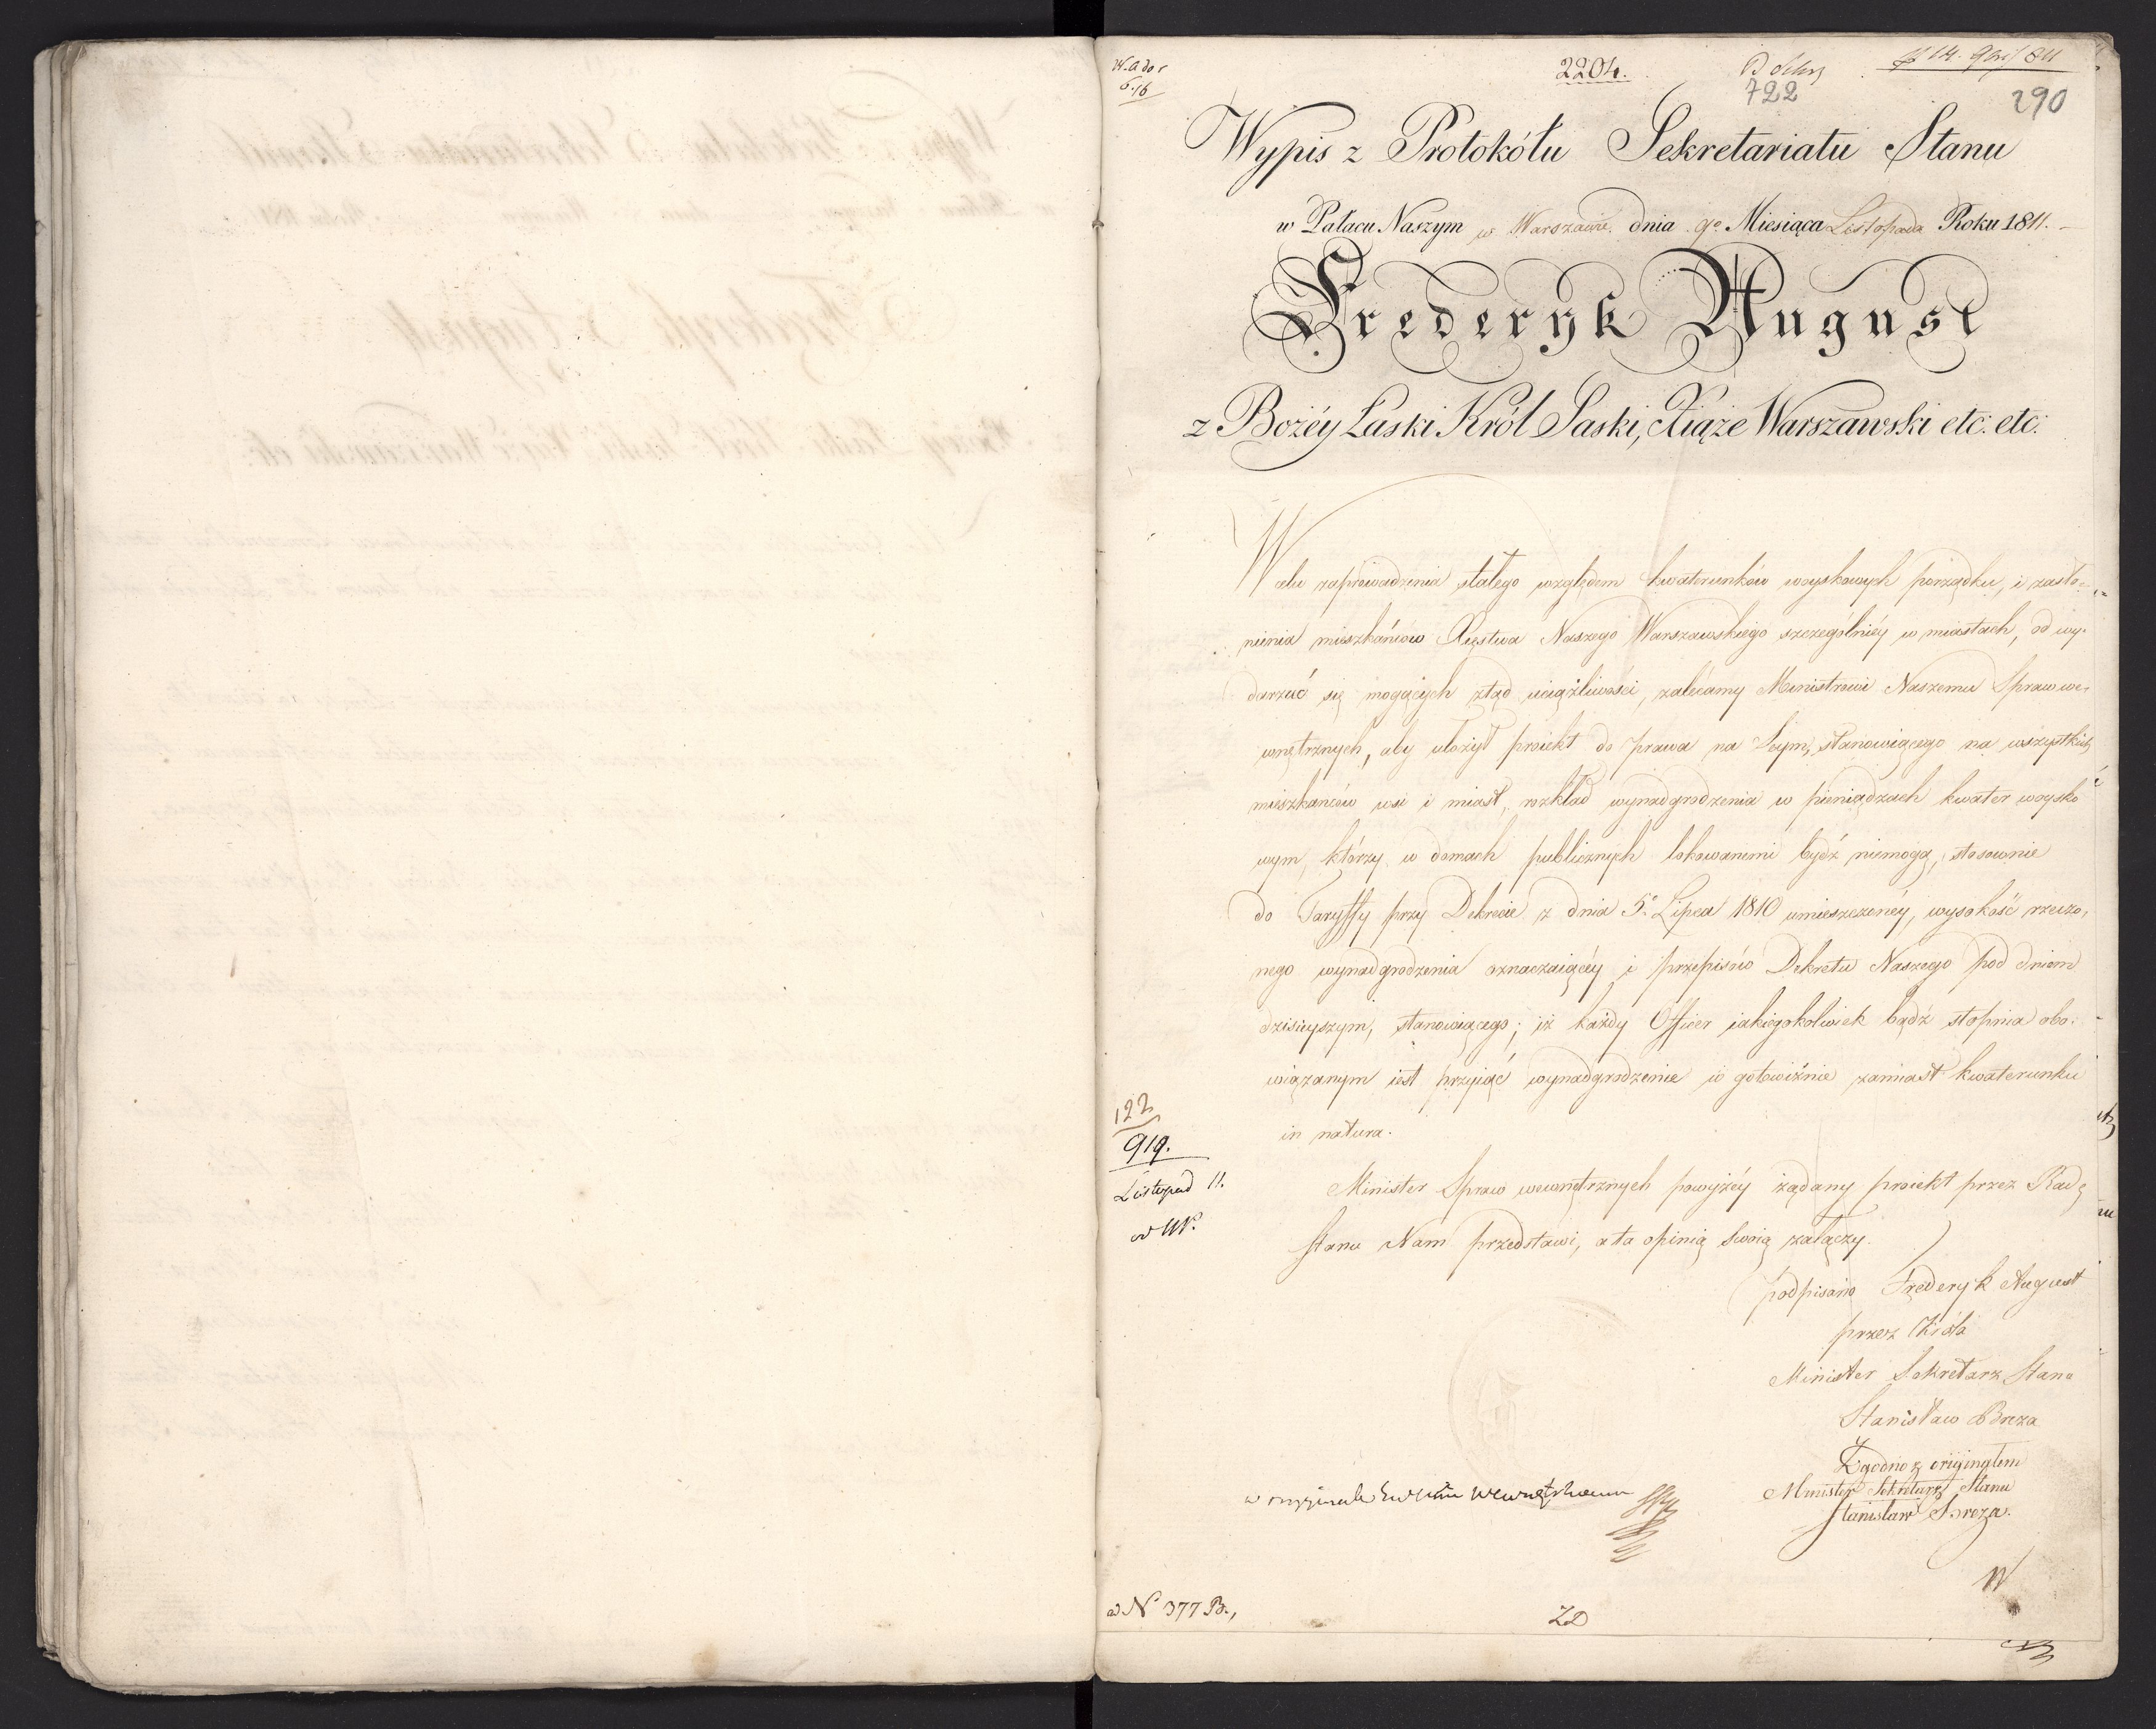 2204.
722
290
Wypis z Protokółu Sekretariatu Stanu
w Pałacu Naszym w Warszawie dnia 9º Miesiąca Listopada Roku 1811.
Frederyk August
z Bożéy Łaski Król Saski, Xiąże Warszawski etc: etc:
W celu zaprowadzenia stałego względem kwaterunków woyskowych porządku, i zasło=
nienia mieszkańców Xięstwa Naszego Warszawskiego szczególniéy w miastach, od wy-
darzać się mogących ztąd uciążliwości, zalécamy Ministrowi Naszemu Spraw we-
wnętrznych, aby ułożył proiekt do prawa na Seym, stanowiącego na wszystkich
mieszkańców wsi i miast, rozkład wynadgrodzenia w pieniądzach kwater woysko
wym, którzy w domach publicznych lokowanemi bydź niemogą, stosownie
do Taryffy przy Dekrecie z dnia 5º Lipca 1810 umieszczonéy, wysokość rzeczo-
nego wynadgrodzenia oznaczaiącéy i przepisów Dekretu Naszego pod dniem
dzisieyszym, stanowiącego; iż każdy Officer iakiegokolwiek bądź stopnia obo-
wiązanym iest przyiąć wynadgrodzenie w gotowiźnie zamiast kwaterunku
in natura.
122
919.
Listopad 11.
Minister Spraw wewnętrznych powyżéy żądany proiekt przez Radę
Stanu Nam przedstawi, a ta opinią swoią załączy.
podpisano Fryderyk August
przez Króla
Minister Sekretarz Stanu
Stanisław Breza
Zgodno z oryginałem
Minister Sekretarz Stanu
Stanisław Breza.
ad Nº 377 B.,